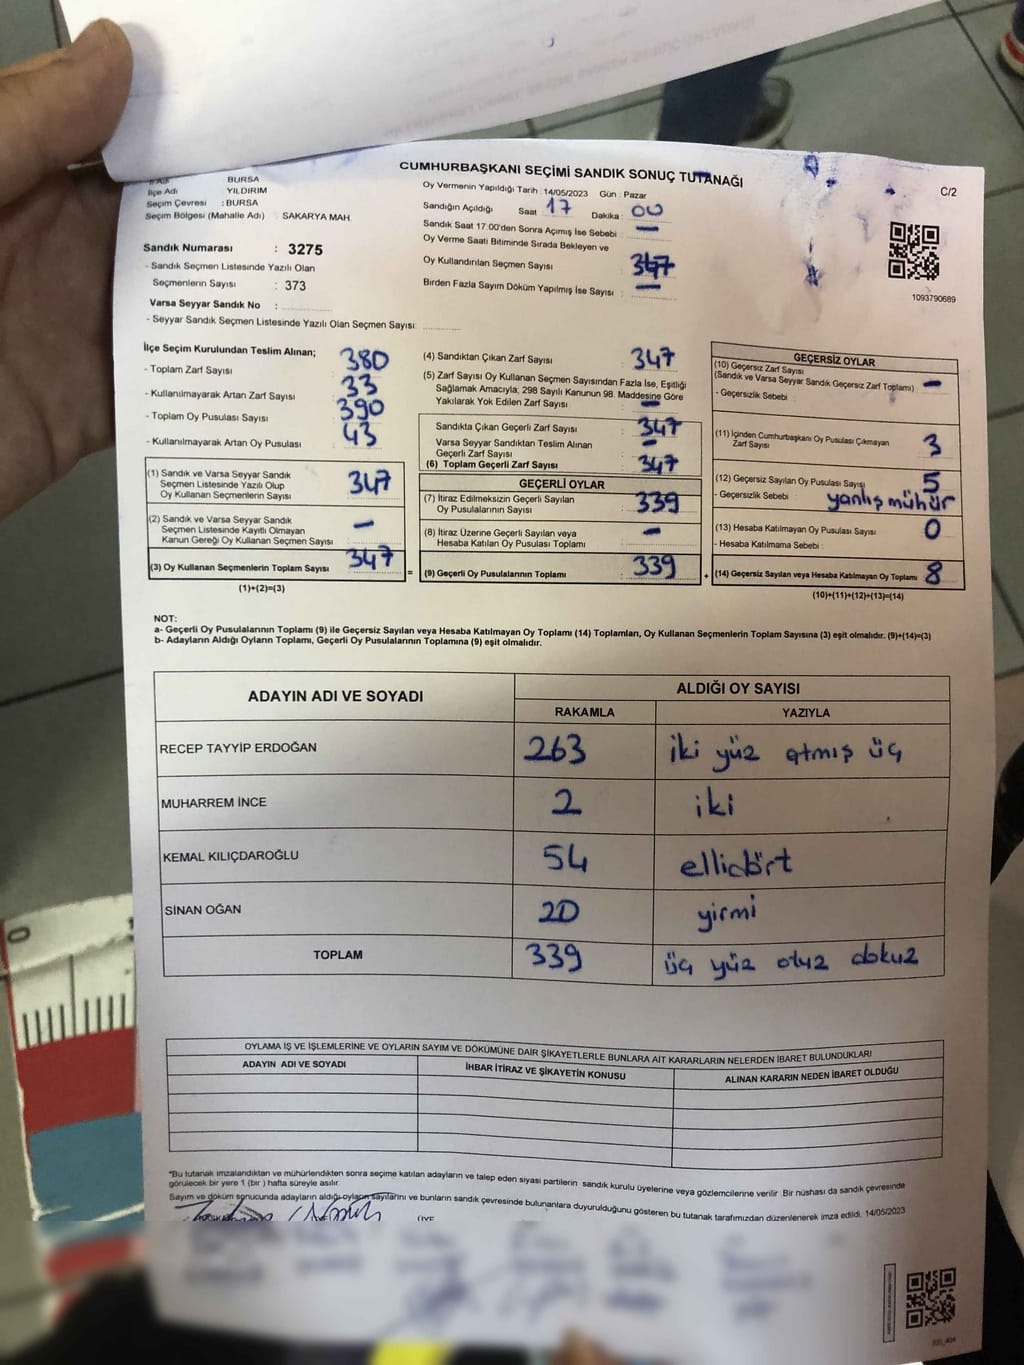 CUMHURBAŞKANI SEÇİMİ SANDIK SONUÇ TUTANAĞI
C/2
BURSA
İlçe Adı YILDIRIM
Seçim Çevresi : BURSA
Seçim Bölgesi (Mahalle Adı) SAKARYA MAH.
Sandık Numarası : 3275
- Sandık Seçmen Listesinde Yazılı Olan
Seçmenlerin Sayısı : 373
Varsa Seyyar Sandık No :
- Seyyar Sandık Seçmen Listesinde Yazılı Olan Seçmen Sayısı:
Oy Vermenin Yapıldığı Tarih : 14/05/2023 Gün : Pazar
Sandığın Açıldığı Saat 17 Dakika : 00
Sandık Saat 17:00'den Sonra Açımış İse Sebebi : —
Oy Verme Saati Bitiminde Sırada Bekleyen ve
Oy Kullandırılan Seçmen Sayısı : 347
Birden Fazla Sayım Döküm Yapılmış İse Sayısı : —
1093790689
İlçe Seçim Kurulundan Teslim Alınan;
- Toplam Zarf Sayısı : 380
- Kullanılmayarak Artan Zarf Sayısı : 33
- Toplam Oy Pusulası Sayısı : 390
- Kullanılmayarak Artan Oy Pusulası : 43
(1) Sandık ve Varsa Seyyar Sandık
Seçmen Listesinde Yazılı Olup
Oy Kullanan Seçmenlerin Sayısı : 347
(2) Sandık ve Varsa Seyyar Sandık
Seçmen Listesinde Kayıtlı Olmayan
Kanun Gereği Oy Kullanan Seçmen Sayısı : —
(3) Oy Kullanan Seçmenlerin Toplam Sayısı : 347 =
(1)+(2)=(3)
(4) Sandıktan Çıkan Zarf Sayısı : 347
(5) Zarf Sayısı Oy Kullanan Seçmen Sayısından Fazla İse, Eşitliği
Sağlamak Amacıyla; 298 Sayılı Kanunun 98. Maddesine Göre
Yakılarak Yok Edilen Zarf Sayısı : —
Sandıkta Çıkan Geçerli Zarf Sayısı : 347
Varsa Seyyar Sandıktan Teslim Alınan
Geçerli Zarf Sayısı : —
(6) Toplam Geçerli Zarf Sayısı : 347
GEÇERLİ OYLAR
(7) İtiraz Edilmeksizin Geçerli Sayılan
Oy Pusulalarının Sayısı : 339
(8) İtiraz Üzerine Geçerli Sayılan veya
Hesaba Katılan Oy Pusulası Toplamı : —
(9) Geçerli Oy Pusulalarının Toplamı : 339 +
GEÇERSİZ OYLAR
(10) Geçersiz Zarf Sayısı
(Sandık ve Varsa Seyyar Sandık Geçersiz Zarf Toplamı) : —
- Geçersizlik Sebebi :
(11) İçinden Cumhurbaşkanı Oy Pusulası Çıkmayan
Zarf Sayısı : 3
(12) Geçersiz Sayılan Oy Pusulası Sayısı : 5
- Geçersizlik Sebebi : yanlış mühür
(13) Hesaba Katılmayan Oy Pusulası Sayısı : 0
- Hesaba Katılmama Sebebi :
(14) Geçersiz Sayılan veya Hesaba Katılmayan Oy Toplamı : 8
(10)+(11)+(12)+(13)=(14)
NOT:
a- Geçerli Oy Pusulalarının Toplamı (9) ile Geçersiz Sayılan veya Hesaba Katılmayan Oy Toplamı (14) Toplamları, Oy Kullanan Seçmenlerin Toplam Sayısına (3) eşit olmalıdır. (9)+(14)=(3)
b- Adayların Aldığı Oyların Toplamı, Geçerli Oy Pusulalarının Toplamına (9) eşit olmalıdır.
ADAYIN ADI VE SOYADI ALDIĞI OY SAYISI
RAKAMLA YAZIYLA
RECEP TAYYİP ERDOĞAN 263 iki yüz atmış üç
MUHARREM İNCE 2 iki
KEMAL KILIÇDAROĞLU 54 ellidört
SİNAN OĞAN 20 yirmi
TOPLAM 339 üç yüz otuz dokuz
OYLAMA İŞ VE İŞLEMLERİNE VE OYLARIN SAYIM VE DÖKÜMÜNE DAİR ŞİKAYETLERLE BUNLARA AİT KARARLARIN NELERDEN İBARET BULUNDUKLARI
ADAYIN ADI VE SOYADI İHBAR İTİRAZ VE ŞİKAYETİN KONUSU ALINAN KARARIN NEDEN İBARET OLDUĞU
*Bu tutanak imzalandıktan ve mühürlendikten sonra seçime katılan adayların ve talep eden siyasi partilerin sandık kurulu üyelerine veya gözlemcilerine verilir. Bir nüshası da sandık çevresinde
görülecek bir yere 1 (bir) hafta süreyle asılır.
Sayım ve döküm sonucunda adayların aldığı oyların sayılarını ve bunların sandık çevresinde bulunanlara duyurulduğunu gösteren bu tutanak tarafımızdan düzenlenerek imza edildi. 14/05/2023
ÜYE